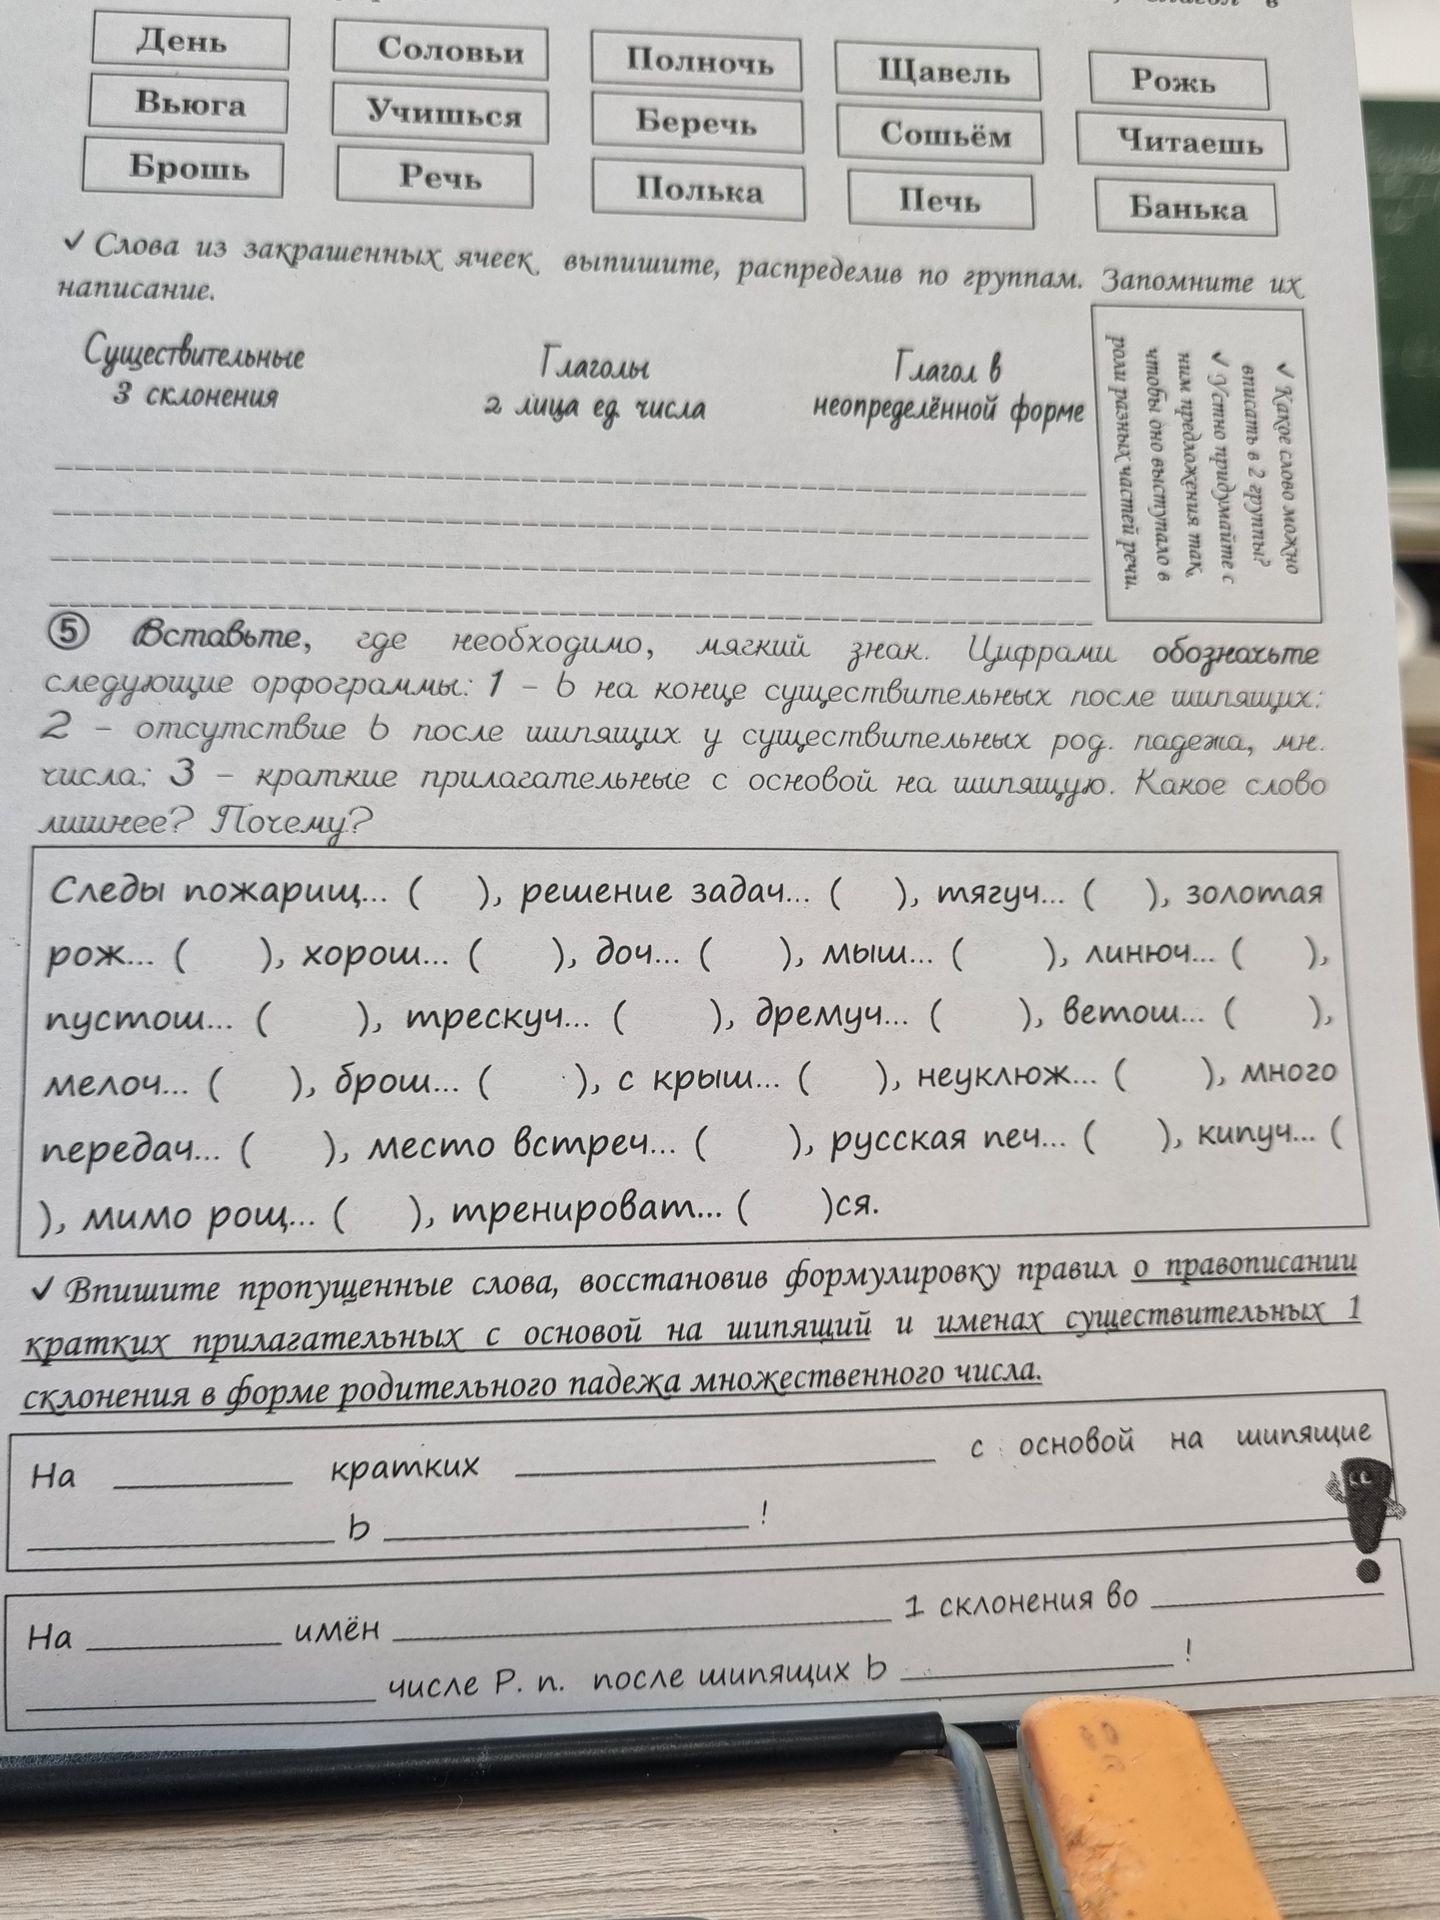 глагол в
День Соловьи Полночь Щавель Рожь
Вьюга Учишься Беречь Сошьём Читаешь
Брошь Речь Полька Печь Банька
✓ Слова из закрашенных ячеек выпишите, распределив по группам. Запомните их
написание.
Существительные
3 склонения
Глаголы
2 лица ед. числа
Глагол в
неопределённой форме
✓ Какое слово можно
вписать в 2 группы?
✓ Устно придумайте с
ним предложения так,
чтобы оно выступало в
роли разных частей речи.
⑤ Вставьте, где необходимо, мягкий знак. Цифрами обозначьте
следующие орфограммы: 1 – ь на конце существительных после шипящих;
2 – отсутствие ь после шипящих у существительных род. падежа, мн.
числа; 3 – краткие прилагательные с основой на шипящую. Какое слово
лишнее? Почему?
Следы пожарищ... ( ), решение задач... ( ), тягуч... ( ), золотая
рож... ( ), хорош... ( ), доч... ( ), мыш... ( ), линюч... ( ),
пустош... ( ), трескуч... ( ), дремуч... ( ), ветош... ( ),
мелоч... ( ), брош... ( ), с крыш... ( ), неуклюж... ( ), много
передач... ( ), место встреч... ( ), русская печ... ( ), кипуч... (
), мимо рощ... ( ), тренироват... ( )ся.
✓ Впишите пропущенные слова, восстановив формулировку правил о правописании
кратких прилагательных с основой на шипящий и именах существительных 1
склонения в форме родительного падежа множественного числа.
На ____ кратких ____ с основой на шипящие
____ ь ____ !
На ____ имён ____ 1 склонения во ____
____ числе Р. п. после шипящих ь ____ !